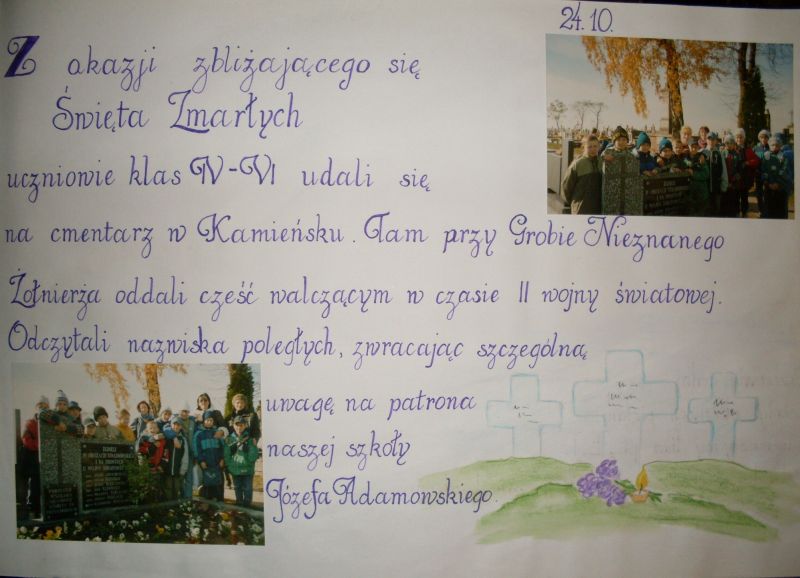 24.10.
Z okazji zbliżającego się
Święta Zmarłych
uczniowie klas IV-VI udali się
na cmentarz w Kamieńsku. Tam przy Grobie Nieznanego
Żołnierza oddali cześć walczącym w czasie II wojny światowej.
Odczytali nazwiska poległych, zwracając szczególną
uwagę na patrona
naszej szkoły
Józefa Adamowskiego.